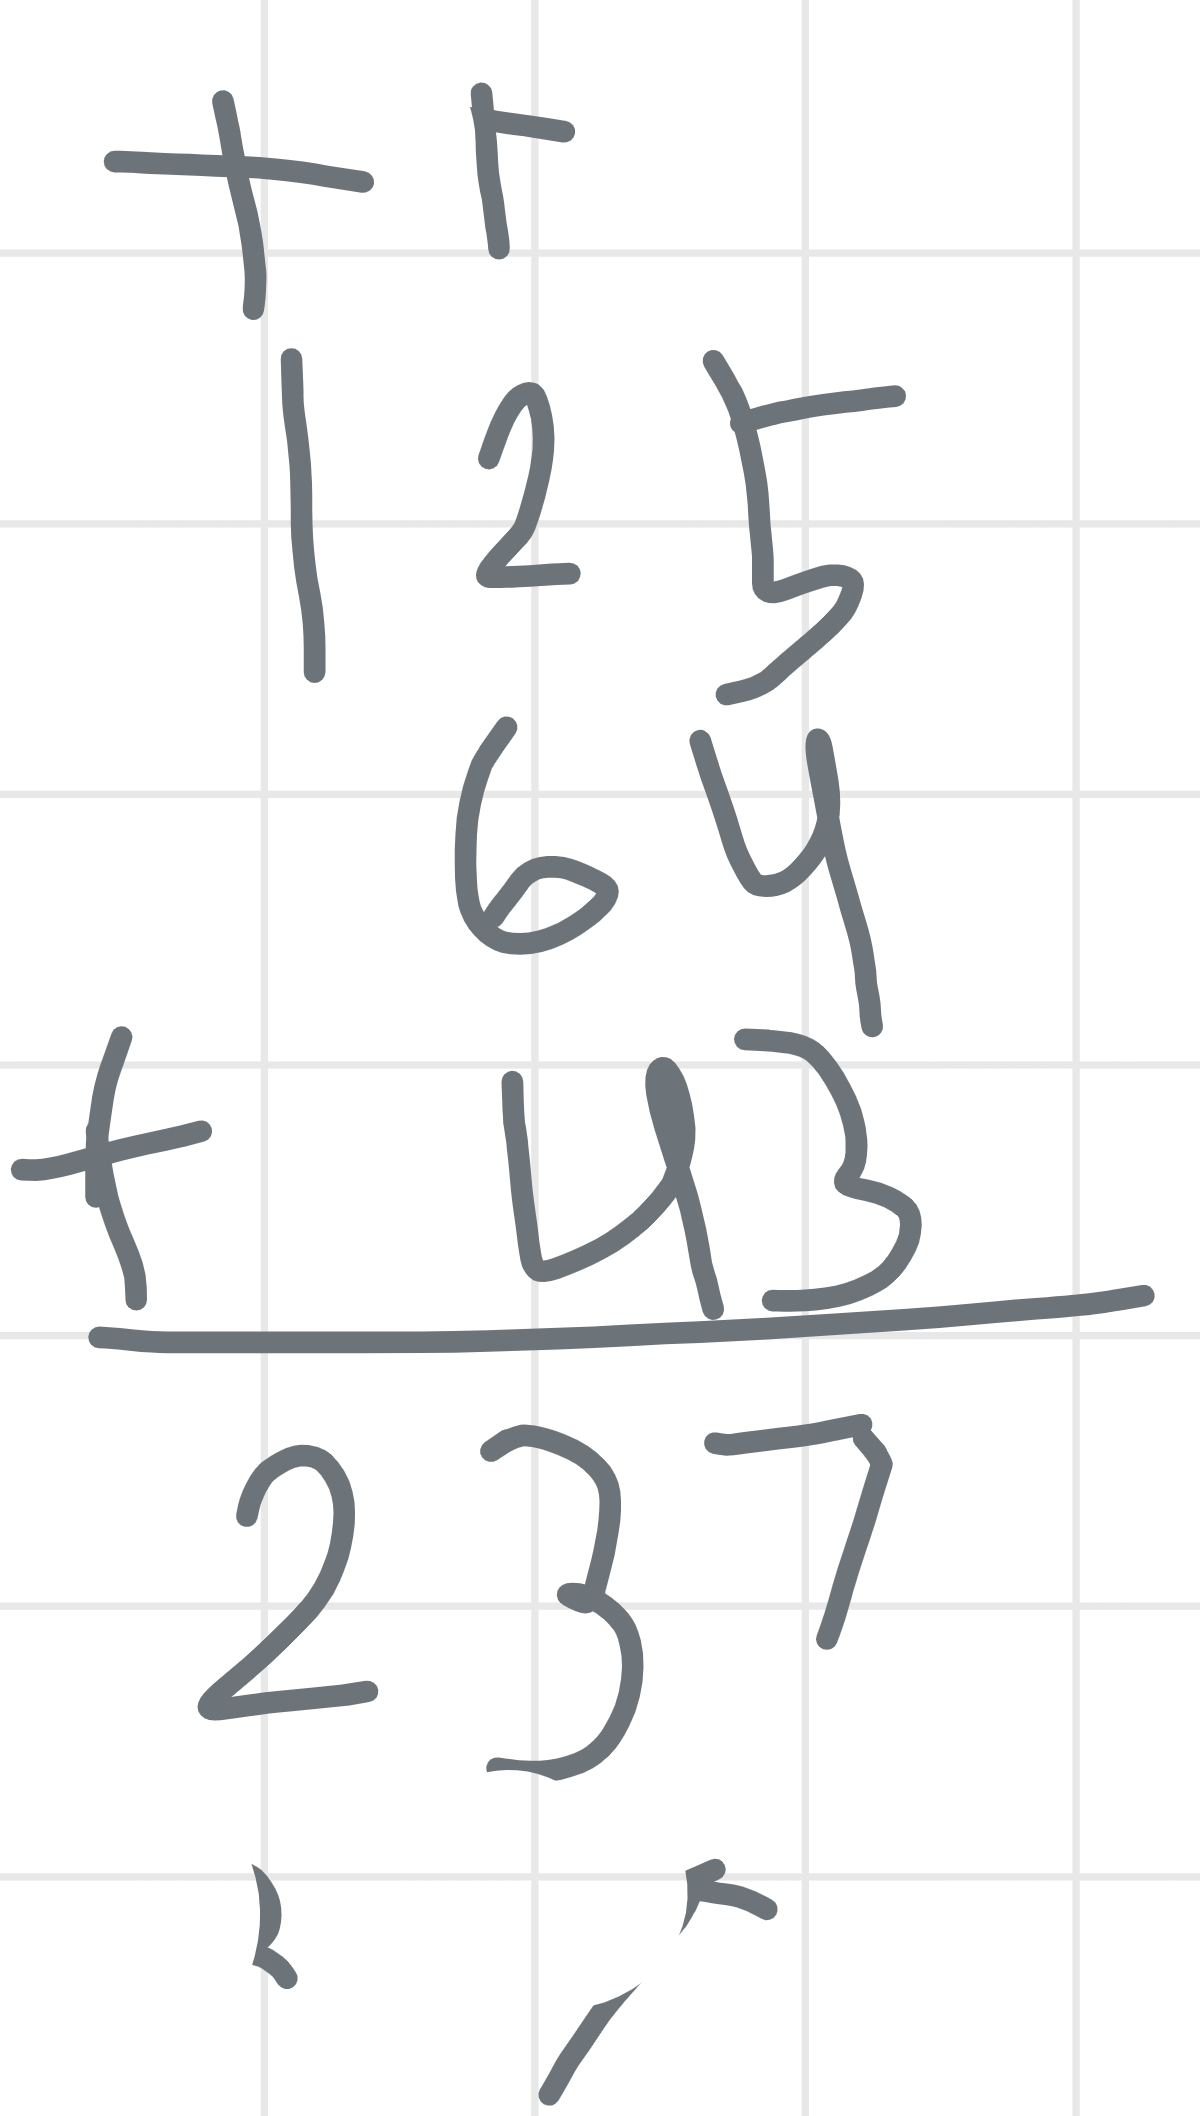 125
64
+ 43
237